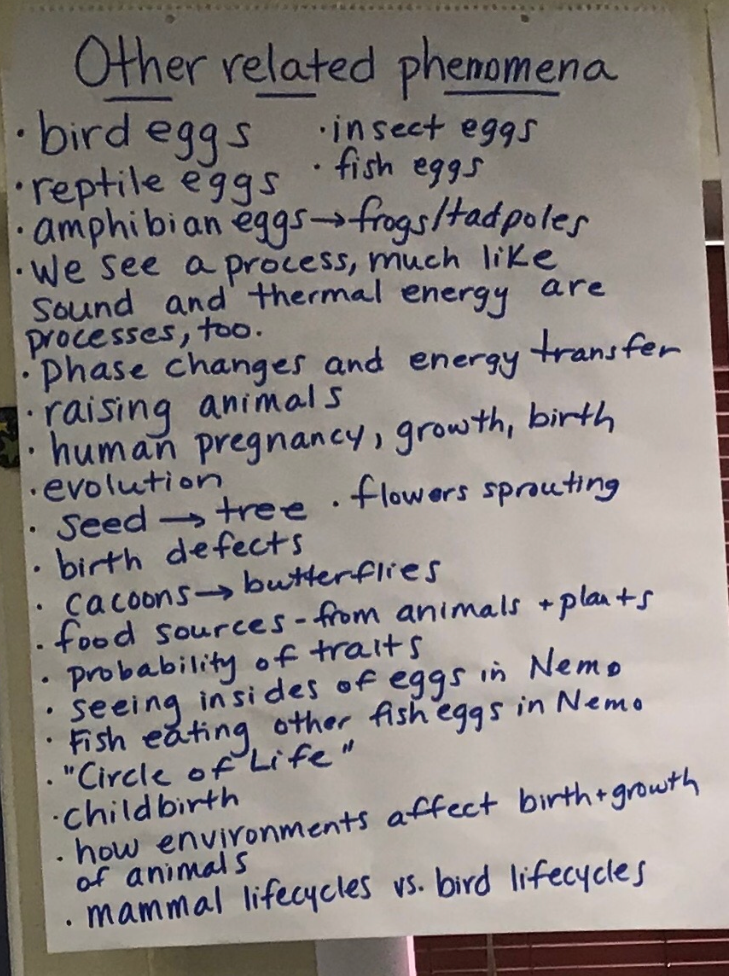 Other related phenomena
• bird eggs • insect eggs
• reptile eggs • fish eggs
• amphibian eggs → frogs/tadpoles
• We see a process, much like
sound and thermal energy are
processes, too.
• Phase changes and energy transfer
• raising animals
• human pregnancy, growth, birth
• evolution
• seed → tree • flowers sprouting
• birth defects
• cacoons → butterflies
• food sources - from animals + plants
• probability of traits
• seeing insides of eggs in Nemo
• Fish eating other fish eggs in Nemo
• "Circle of Life"
• childbirth
• how environments affect birth + growth
of animals
• mammal lifecycles vs. bird lifecycles